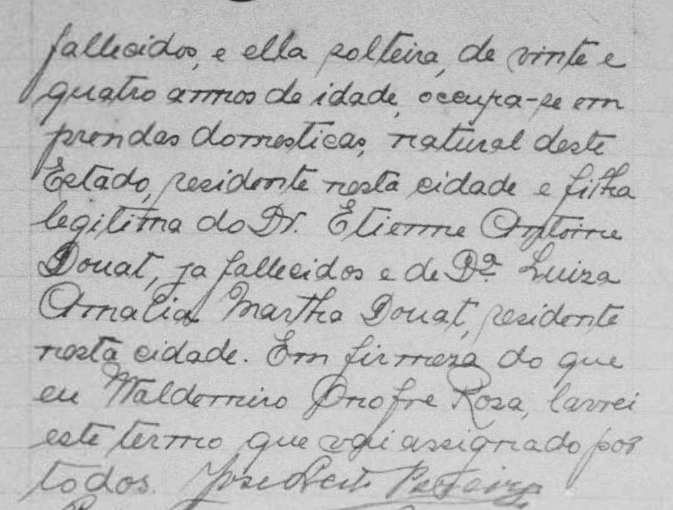 fallecidos, e ella solteira, de vinte e
quatro annos de idade, occupa-se em
prendas domesticas, natural deste
Estado, residente nesta cidade e filha
legitima do Dr. Etienne Antoine
Douat, ja fallecidos e de Dª. Luiza
Amalia Martha Douat, residente
nesta cidade. Em firmeza do que
eu Waldemiro Onofre Rosa, lavrei
este termo que vai assignado por
todos. José Leite Pereira